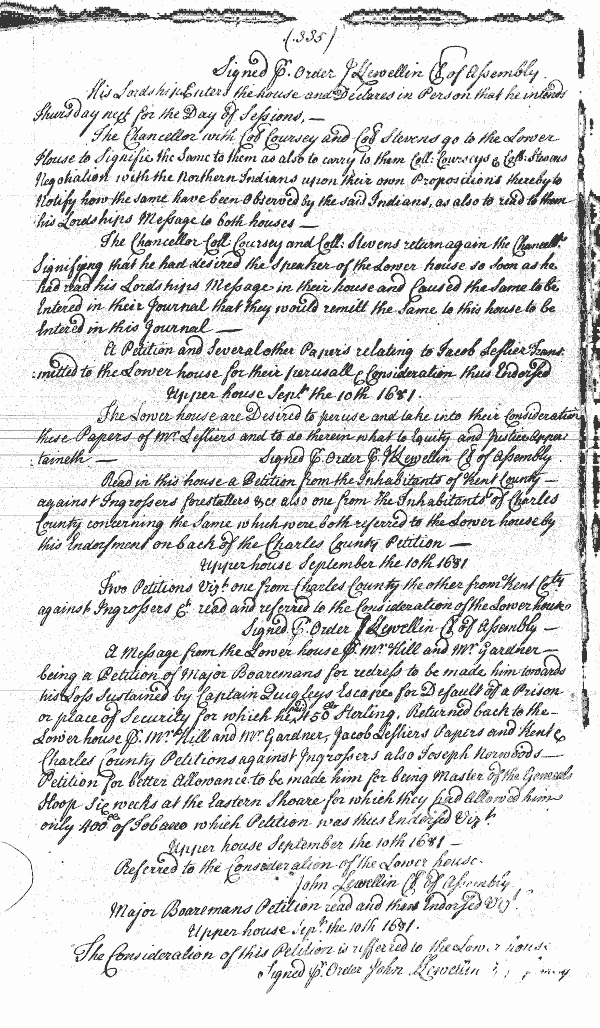 (335)
Signed P. Order J Llewellin Cl of Assembly.
His Lordship Enters the house and Declares in Person that he intends
Thursday next for the Day of Sessions, —
The Chancellor with Coll Coursey and Coll Stevens go to the Lower
House to Signifie the Same to them as also to carry to them Coll: Courseys & Coll: Stevens
Negotiation with the Northern Indians upon their own Propositions thereby to
Notify how the same have been Observed by the said Indians, as also to read to them
his Lordships Message to both houses —
The Chancellor Coll Coursey and Coll: Stevens return again the Chancellr
Signifying that he had desired the Speaker of the Lower house so soon as he
had read his Lordships Message in their house and Caused the Same to be
Entered in their Journal that they would remitt the Same to this house to be
Entered in this Journal —
A Petition and Several other Papers relating to Jacob Leslier Trans
:mitted to the Lower house for their perusall & Consideration thus Endorsed
Upper house Septr the 10th 1681.
The Lower house are Desired to peruse and take into their Consideration
these Papers of Mr Lesliers and to do therein what to Equity and Justice Apper
taineth — Signed P. Order P J Llewellin Cl of Assembly
Read in this house a Petition from the Inhabitants of Kent County —
against Ingrossers forestallers &ca also one from the Inhabitants of Charles
County concerning the Same which were both referred to the Lower house by
this Endorsment on back of the Charles County Petition —
Upper house September the 10th 1681
Two Petitions Vizt one from Charles County the other from Kent Coty
against Ingrossers &c read and referred to the Consideration of the Lower house
Signed P. Order J Llewellin Cl of Assembly —
A Message from the Lower house P. Mr Hill and Mr Gardner —
being a Petition of Major Boaremans for redress to be made him towards
his Loss Sustained by Captain Quigleys Escape for Default of a Prison
or place of Security for which he pd £50 Sterling. Returned back to the
Lower house P. Mr Hill and Mr Gardner, Jacob Lesliers Papers and Kent &
Charles County Petitions against Ingrossers also Joseph Norwoods —
Petition for better Allowance to be made him for being Master of the Generals
Sloop Six weeks at the Eastern Shoare for which they had Allowed him
only 400 of Tobacco which Petition was thus Endorsed Vizt
Upper house September the 10th 1681 —
Referred to the Consideration of the Lower house.
John Llewellin Cl of Assembly
Major Boaremans Petition read and then Endorsed Vizt
Upper house Sepr the 10th 1681.
The Consideration of this Petition is refferred to the Lower house
Signed P. Order John Llewellin